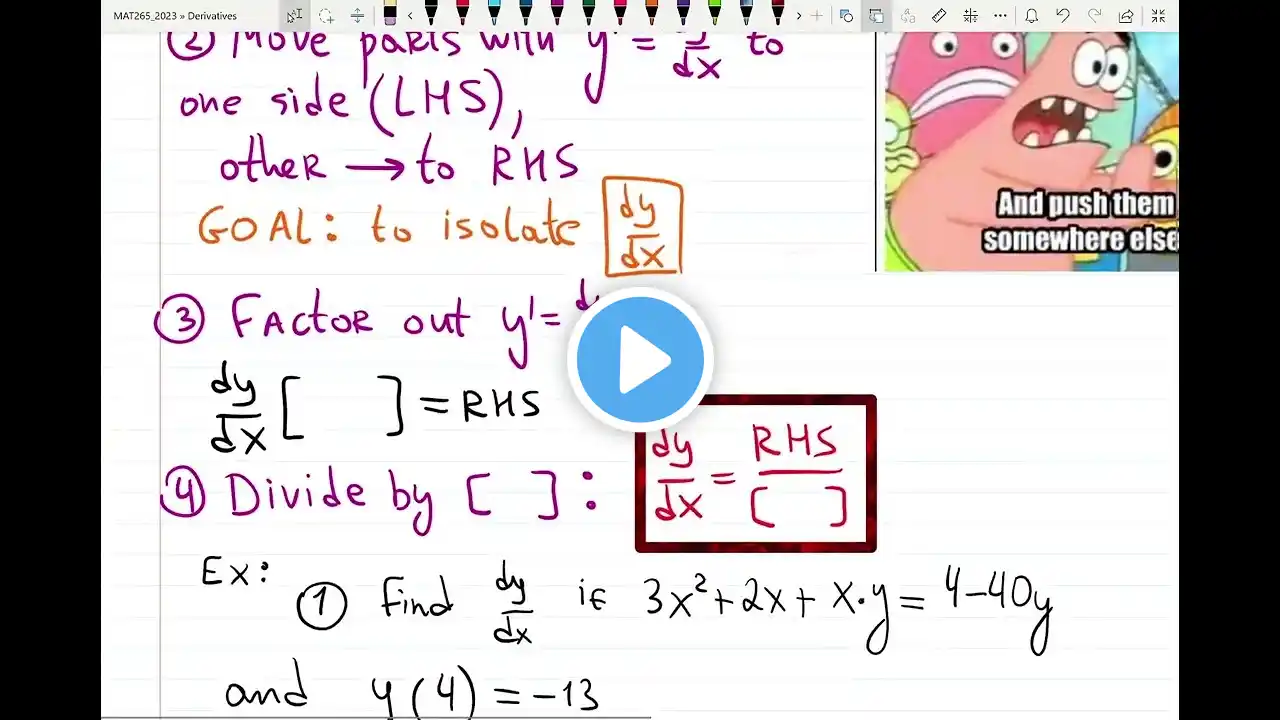 MAT265_2023 » Derivatives
② Move parts with y' = dy/dx to
one side (LHS),
other → to RHS
GOAL: to isolate dy/dx
And push them
somewhere else
③ Factor out y' =
dy/dx [ ] = RHS
④ Divide by [ ] :
dy/dx = RHS/[ ]
Ex:
① Find dy/dx if 3x² + 2x + x·y = 4 – 40y
and y(4) = –13